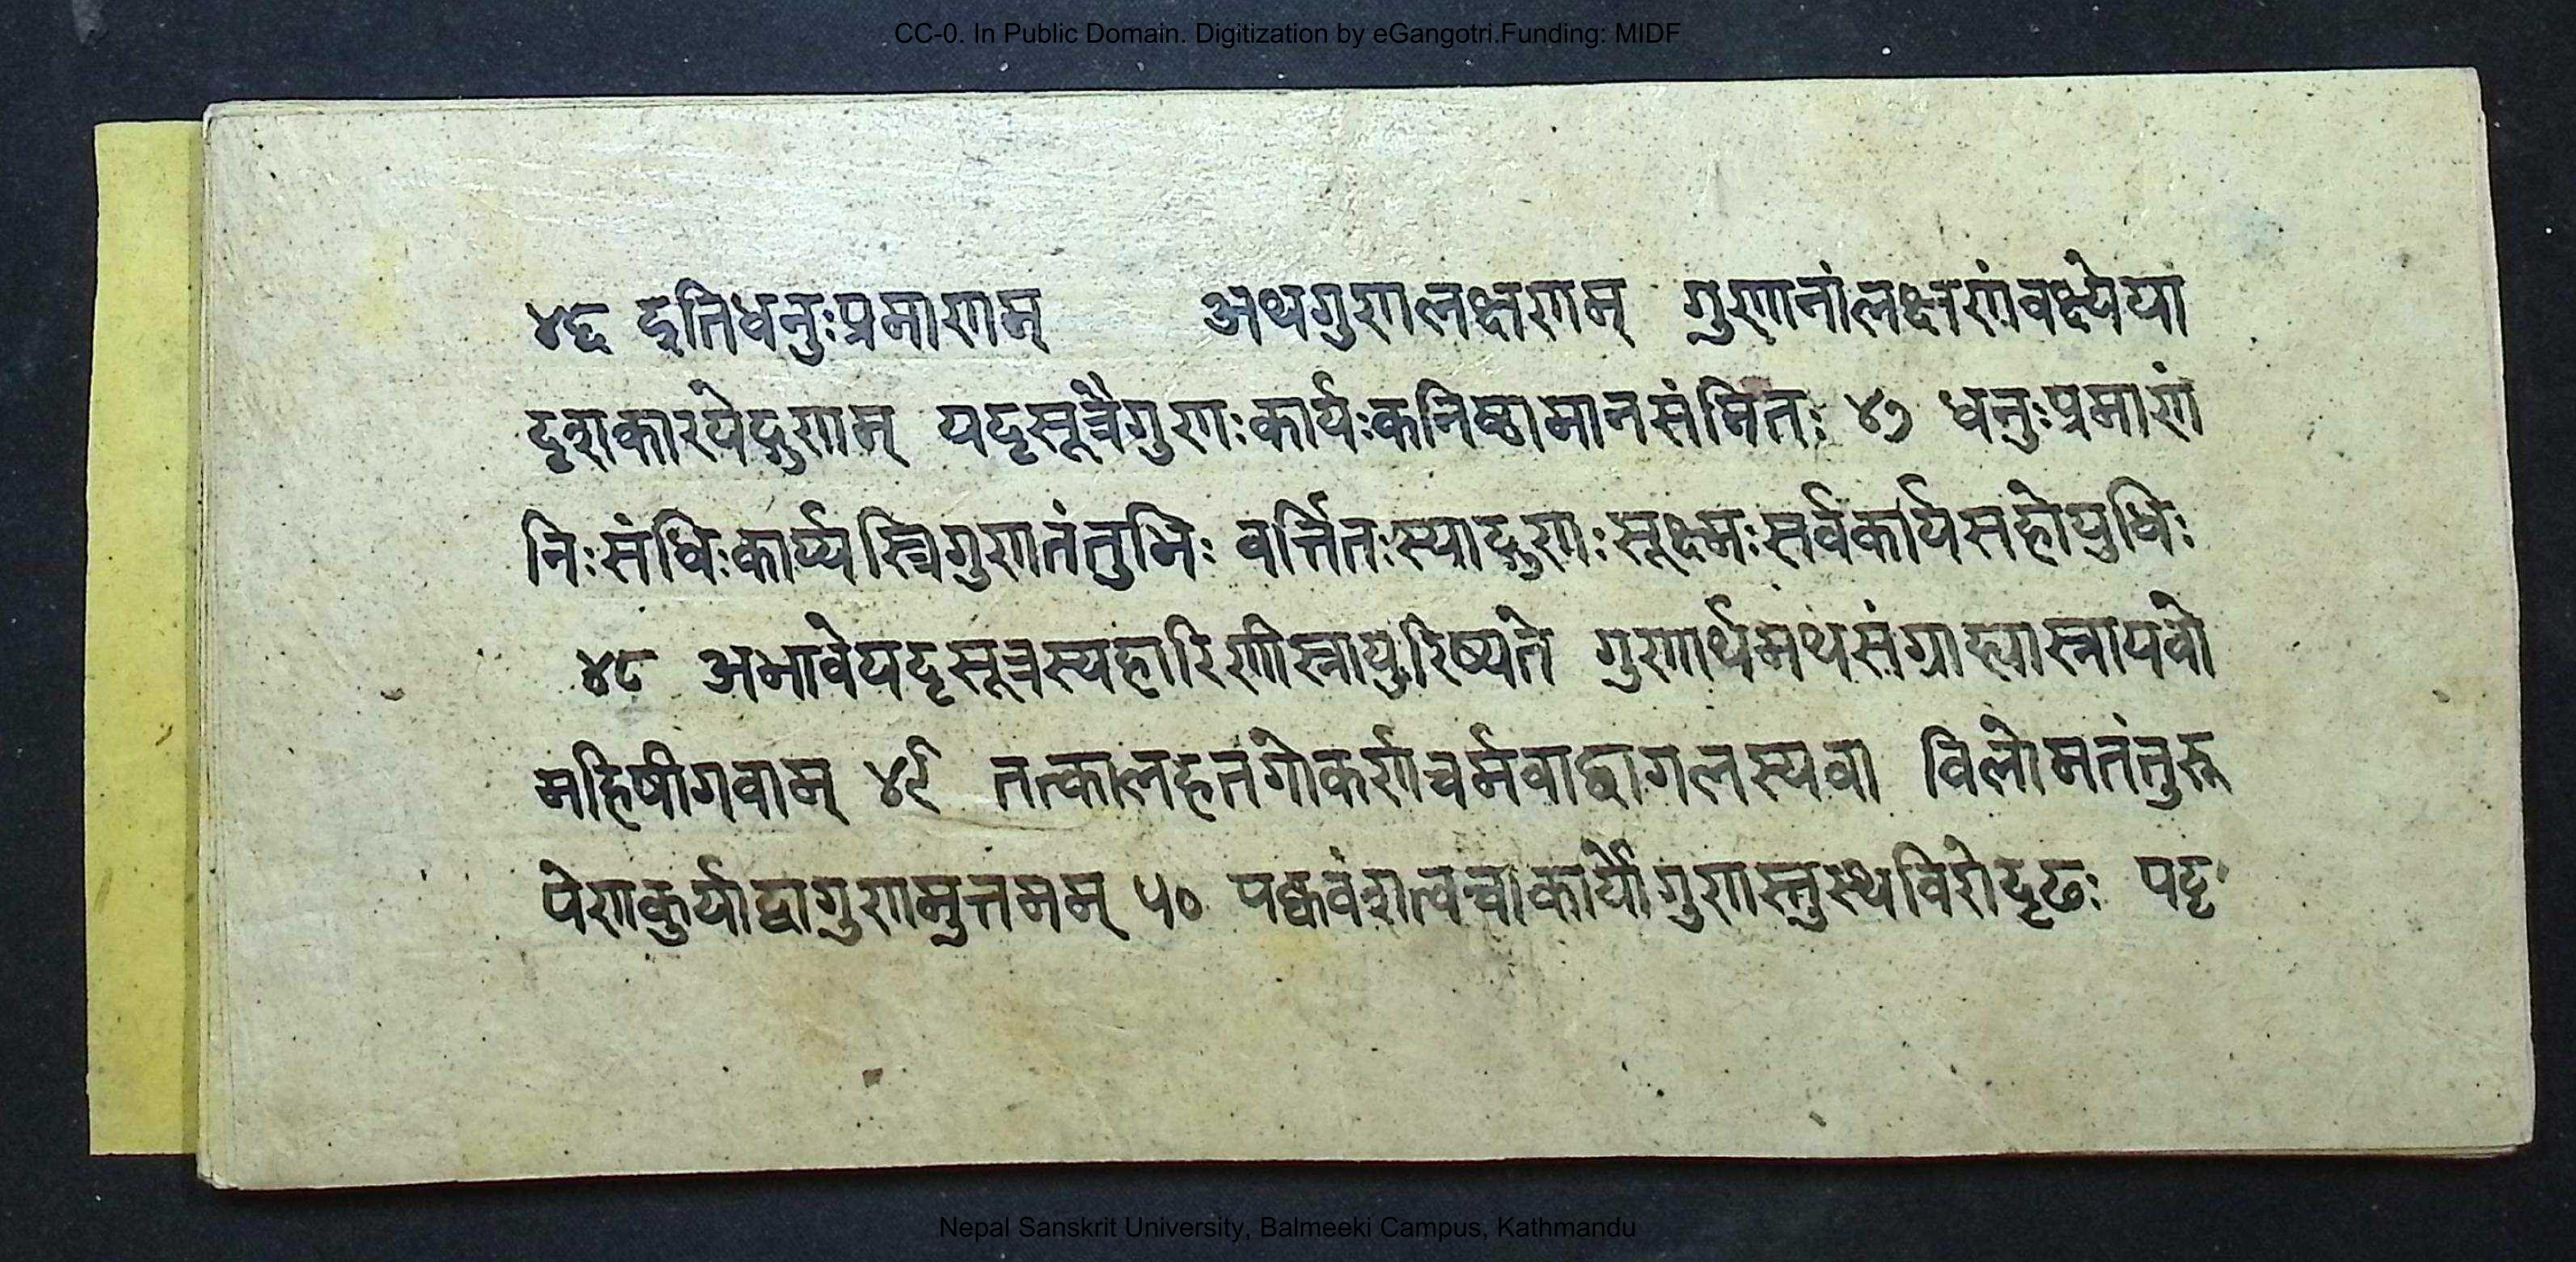 CC-0. In Public Domain. Digitization by eGangotri.Funding: MIDF
४६ इतिधनुःप्रमाणम् अथगुणलक्षणम् गुणानांलक्षणंवक्ष्येया
दृशंकारयेद्गुणम् पट्टसूत्रैगुणःकार्यःकनिष्ठामानसंमितः ४७ धनुःप्रमाणं
निःसंधिःकार्य्यस्त्रिगुणतंतुभिः वर्त्तितःस्याद्गुणःसूक्ष्मःसर्वकार्यसहोयुधिः
४८ अभावेपट्टसूत्रस्यहारिणीस्नायुरिष्यते गुणार्थमथसंग्राह्यास्नायवो
महिषीगवाम् ४९ तत्कालहतगोकर्णचर्मवाछागलस्यवा विलोमतंतुरू
पेणकुर्याद्वागुणमुत्तमम् ५० पक्ववंशत्वचाकार्योगुणस्तुस्थविरोदृढः पट्ट
Nepal Sanskrit University, Balmeeki Campus, Kathmandu